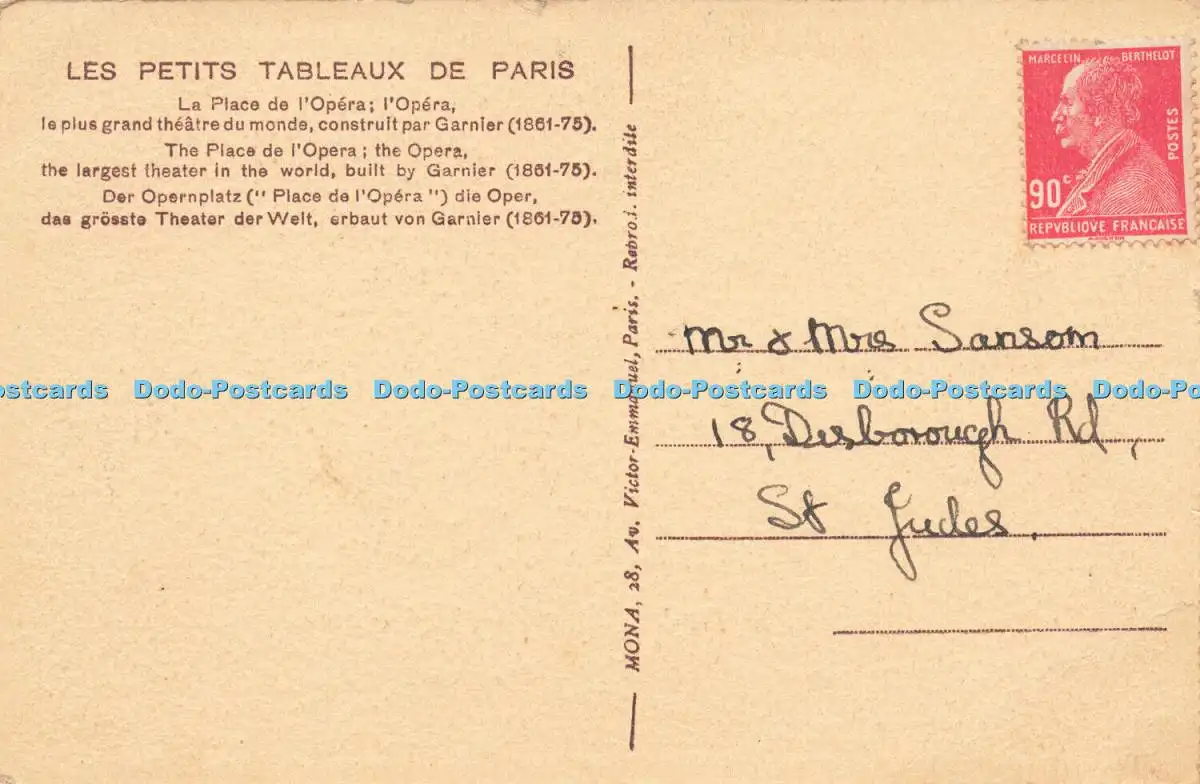 LES PETITS TABLEAUX DE PARIS
La Place de l'Opéra; l'Opéra,
le plus grand théâtre du monde, construit par Garnier (1861-75).
The Place de l'Opera; the Opera,
the largest theater in the world, built by Garnier (1861-75).
Der Opernplatz (" Place de l'Opéra ") die Oper,
das grösste Theater der Welt, erbaut von Garnier (1861-75).
MONA, 28, Av. Victor-Emmanuel, Paris. - Reprod. interdite
MARCELIN BERTHELOT
POSTES
90c
REPVBLIQVE FRANCAISE
Mr & Mrs Sansom
18, Desborough Rd,
St Judes.
Dodo-Postcards Dodo-Postcards Dodo-Postcards Dodo-Postcards Dodo-Postcards